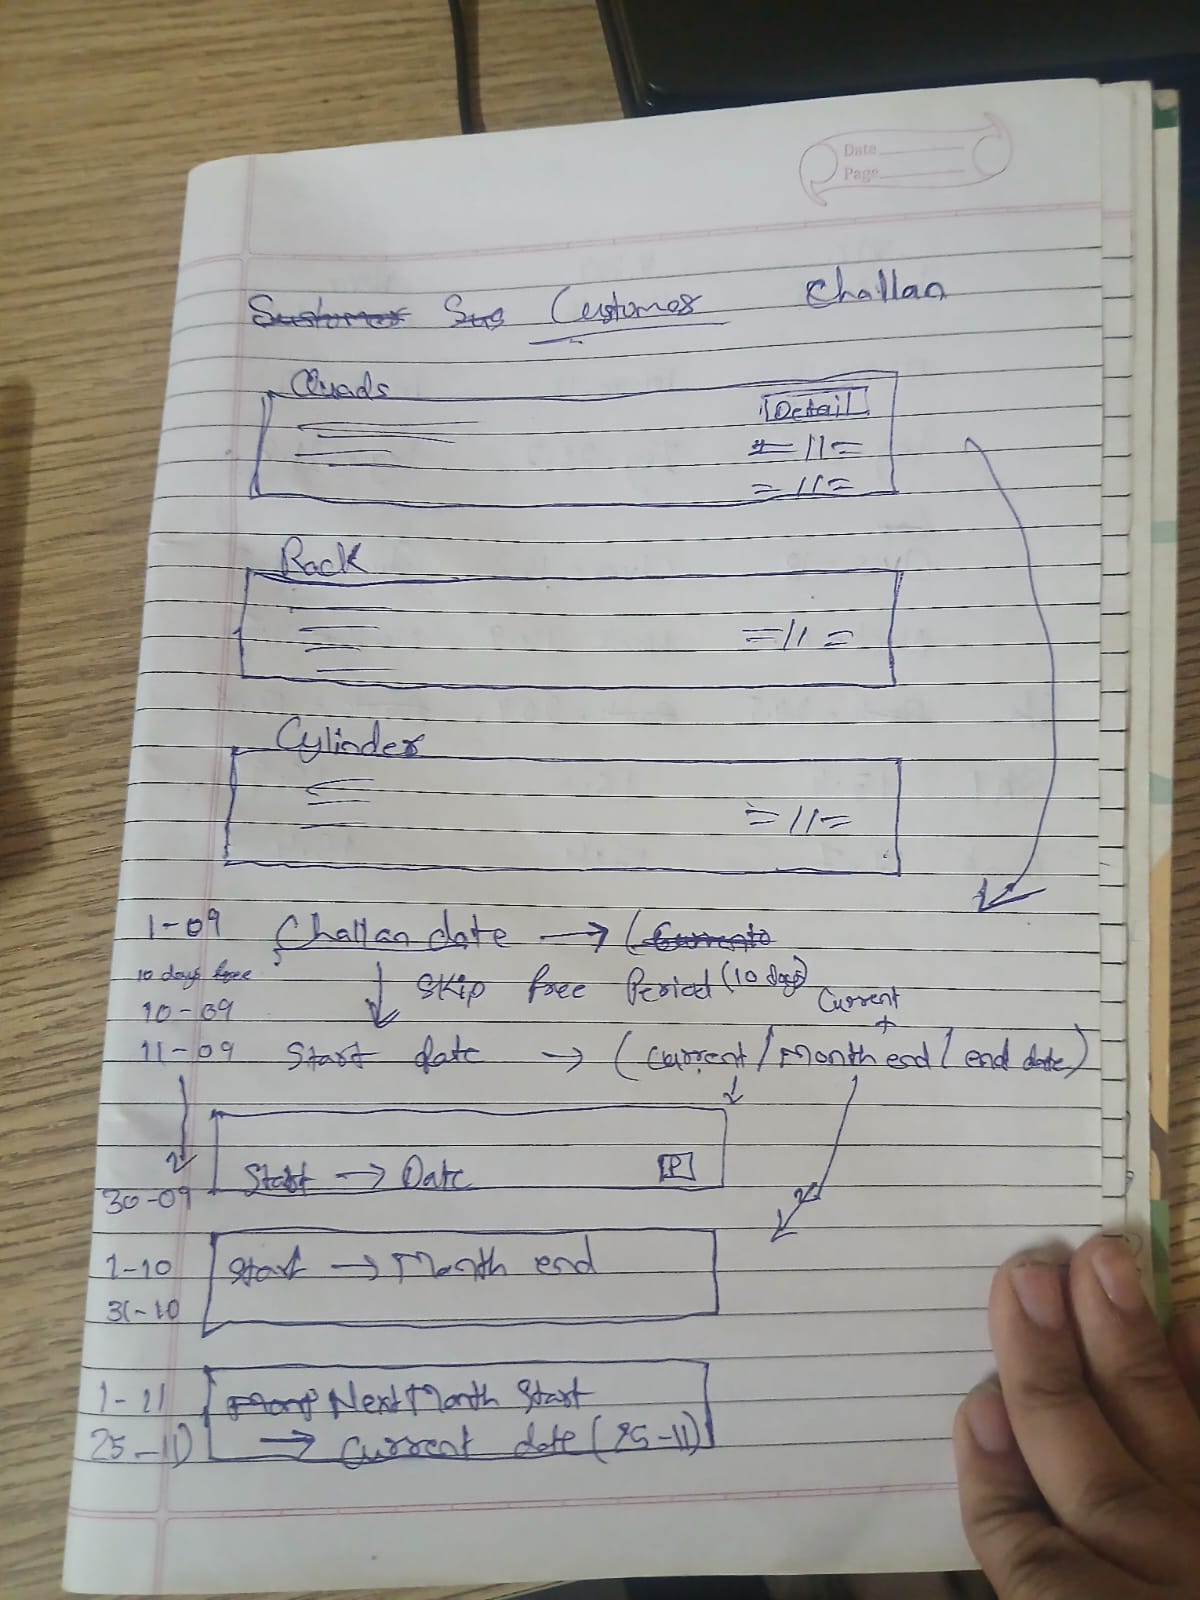 Date
Page
Sustomer Sus Customer Challan
Quads
Detail
= 11 =
= 11 =
Rack
= 11 =
Cylinder
= 11 =
1-09 Challan date → (Current
10 days free ↓ Skip free Period (10 days)
10-09 Current
+
11-09 Start date → (Current / Month end / end date)
Start → Date P
30-09
1-10 Start → Month end
31-10
1-11 Next Month Start
25-11 → Current date (25-11)